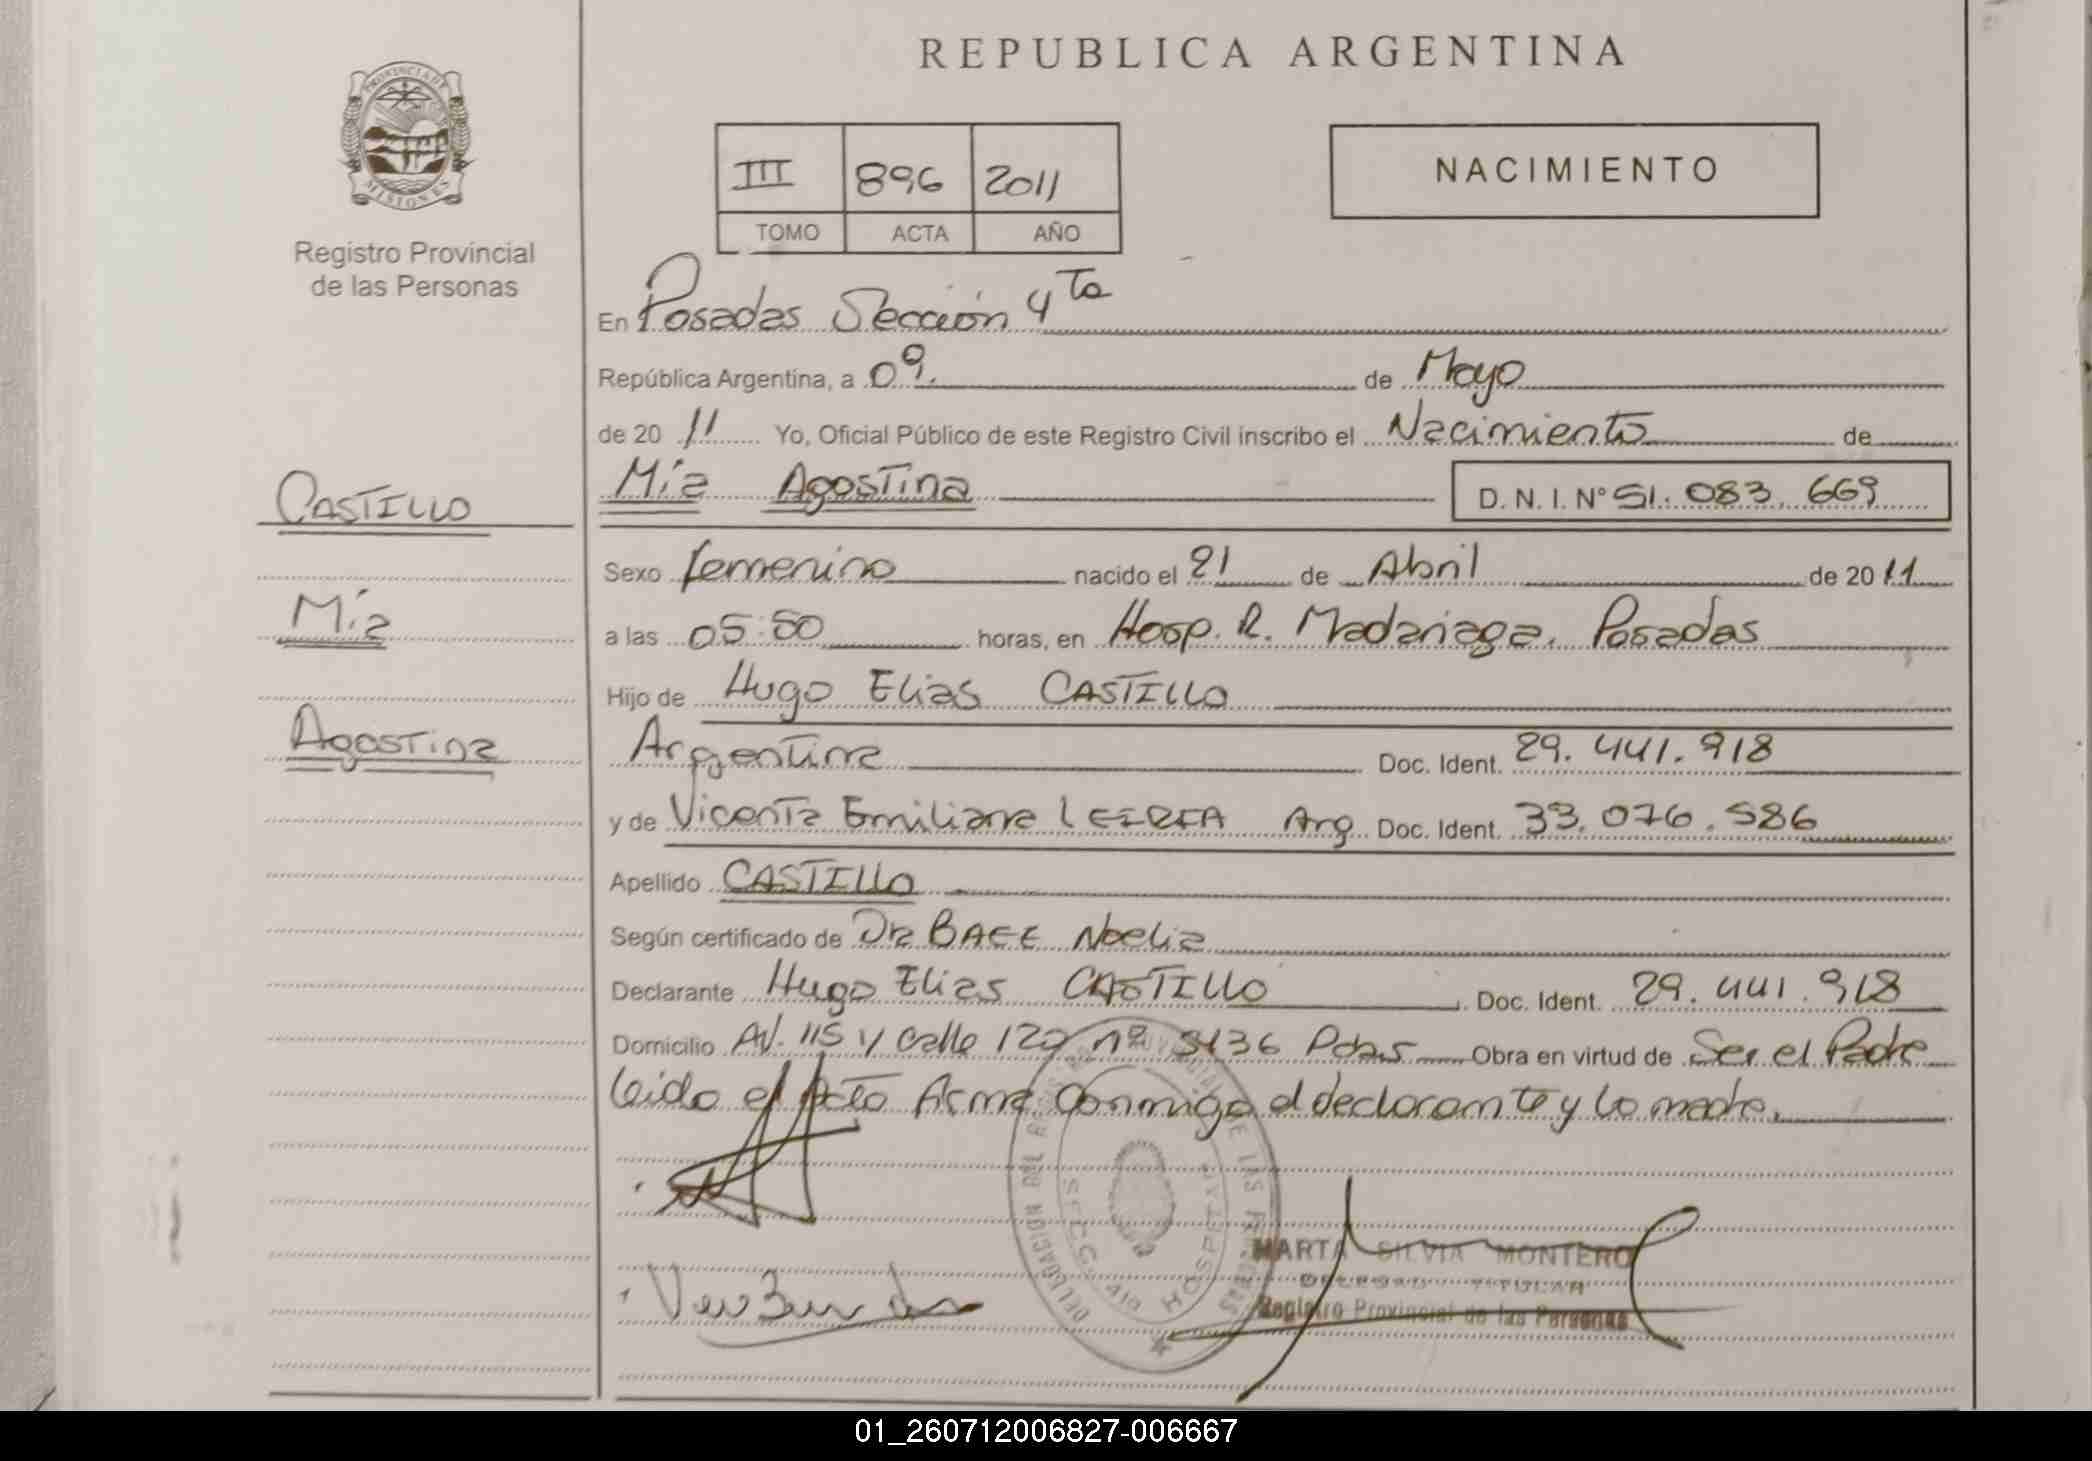 REPUBLICA ARGENTINA
PROVINCIA DE
MISIONES
Registro Provincial
de las Personas
III 896 2011
TOMO ACTA AÑO
NACIMIENTO
En Posadas Sección 4ta
República Argentina, a 09. de Mayo
de 20 11 Yo, Oficial Público de este Registro Civil inscribo el Nacimiento de
CASTILLO
Mía Agostina D. N. I. N° 51.083.669
Sexo femenino nacido el 21 de Abril de 2011
Mía
a las 05:50 horas, en Hosp. R. Madariaga. Posadas
Hijo de Hugo Elias CASTILLO
Agostina
Argentina Doc. Ident. 29.441.918
y de Vicenta Emiliana Arg. Doc. Ident. 33.076.586
Apellido CASTILLO
Según certificado de Dra BAEE Noelia
Declarante Hugo Elias CASTILLO Doc. Ident. 29.441.918
Domicilio Av. 115 y calle 122 nº 3136 Pdas Obra en virtud de Ser el Padre
leido el Acto firma conmigo el declarante y la madre.
MARTA SILVIA MONTERO
DELEGADA TITULAR
Registro Provincial de las Personas
01_260712006827-006667